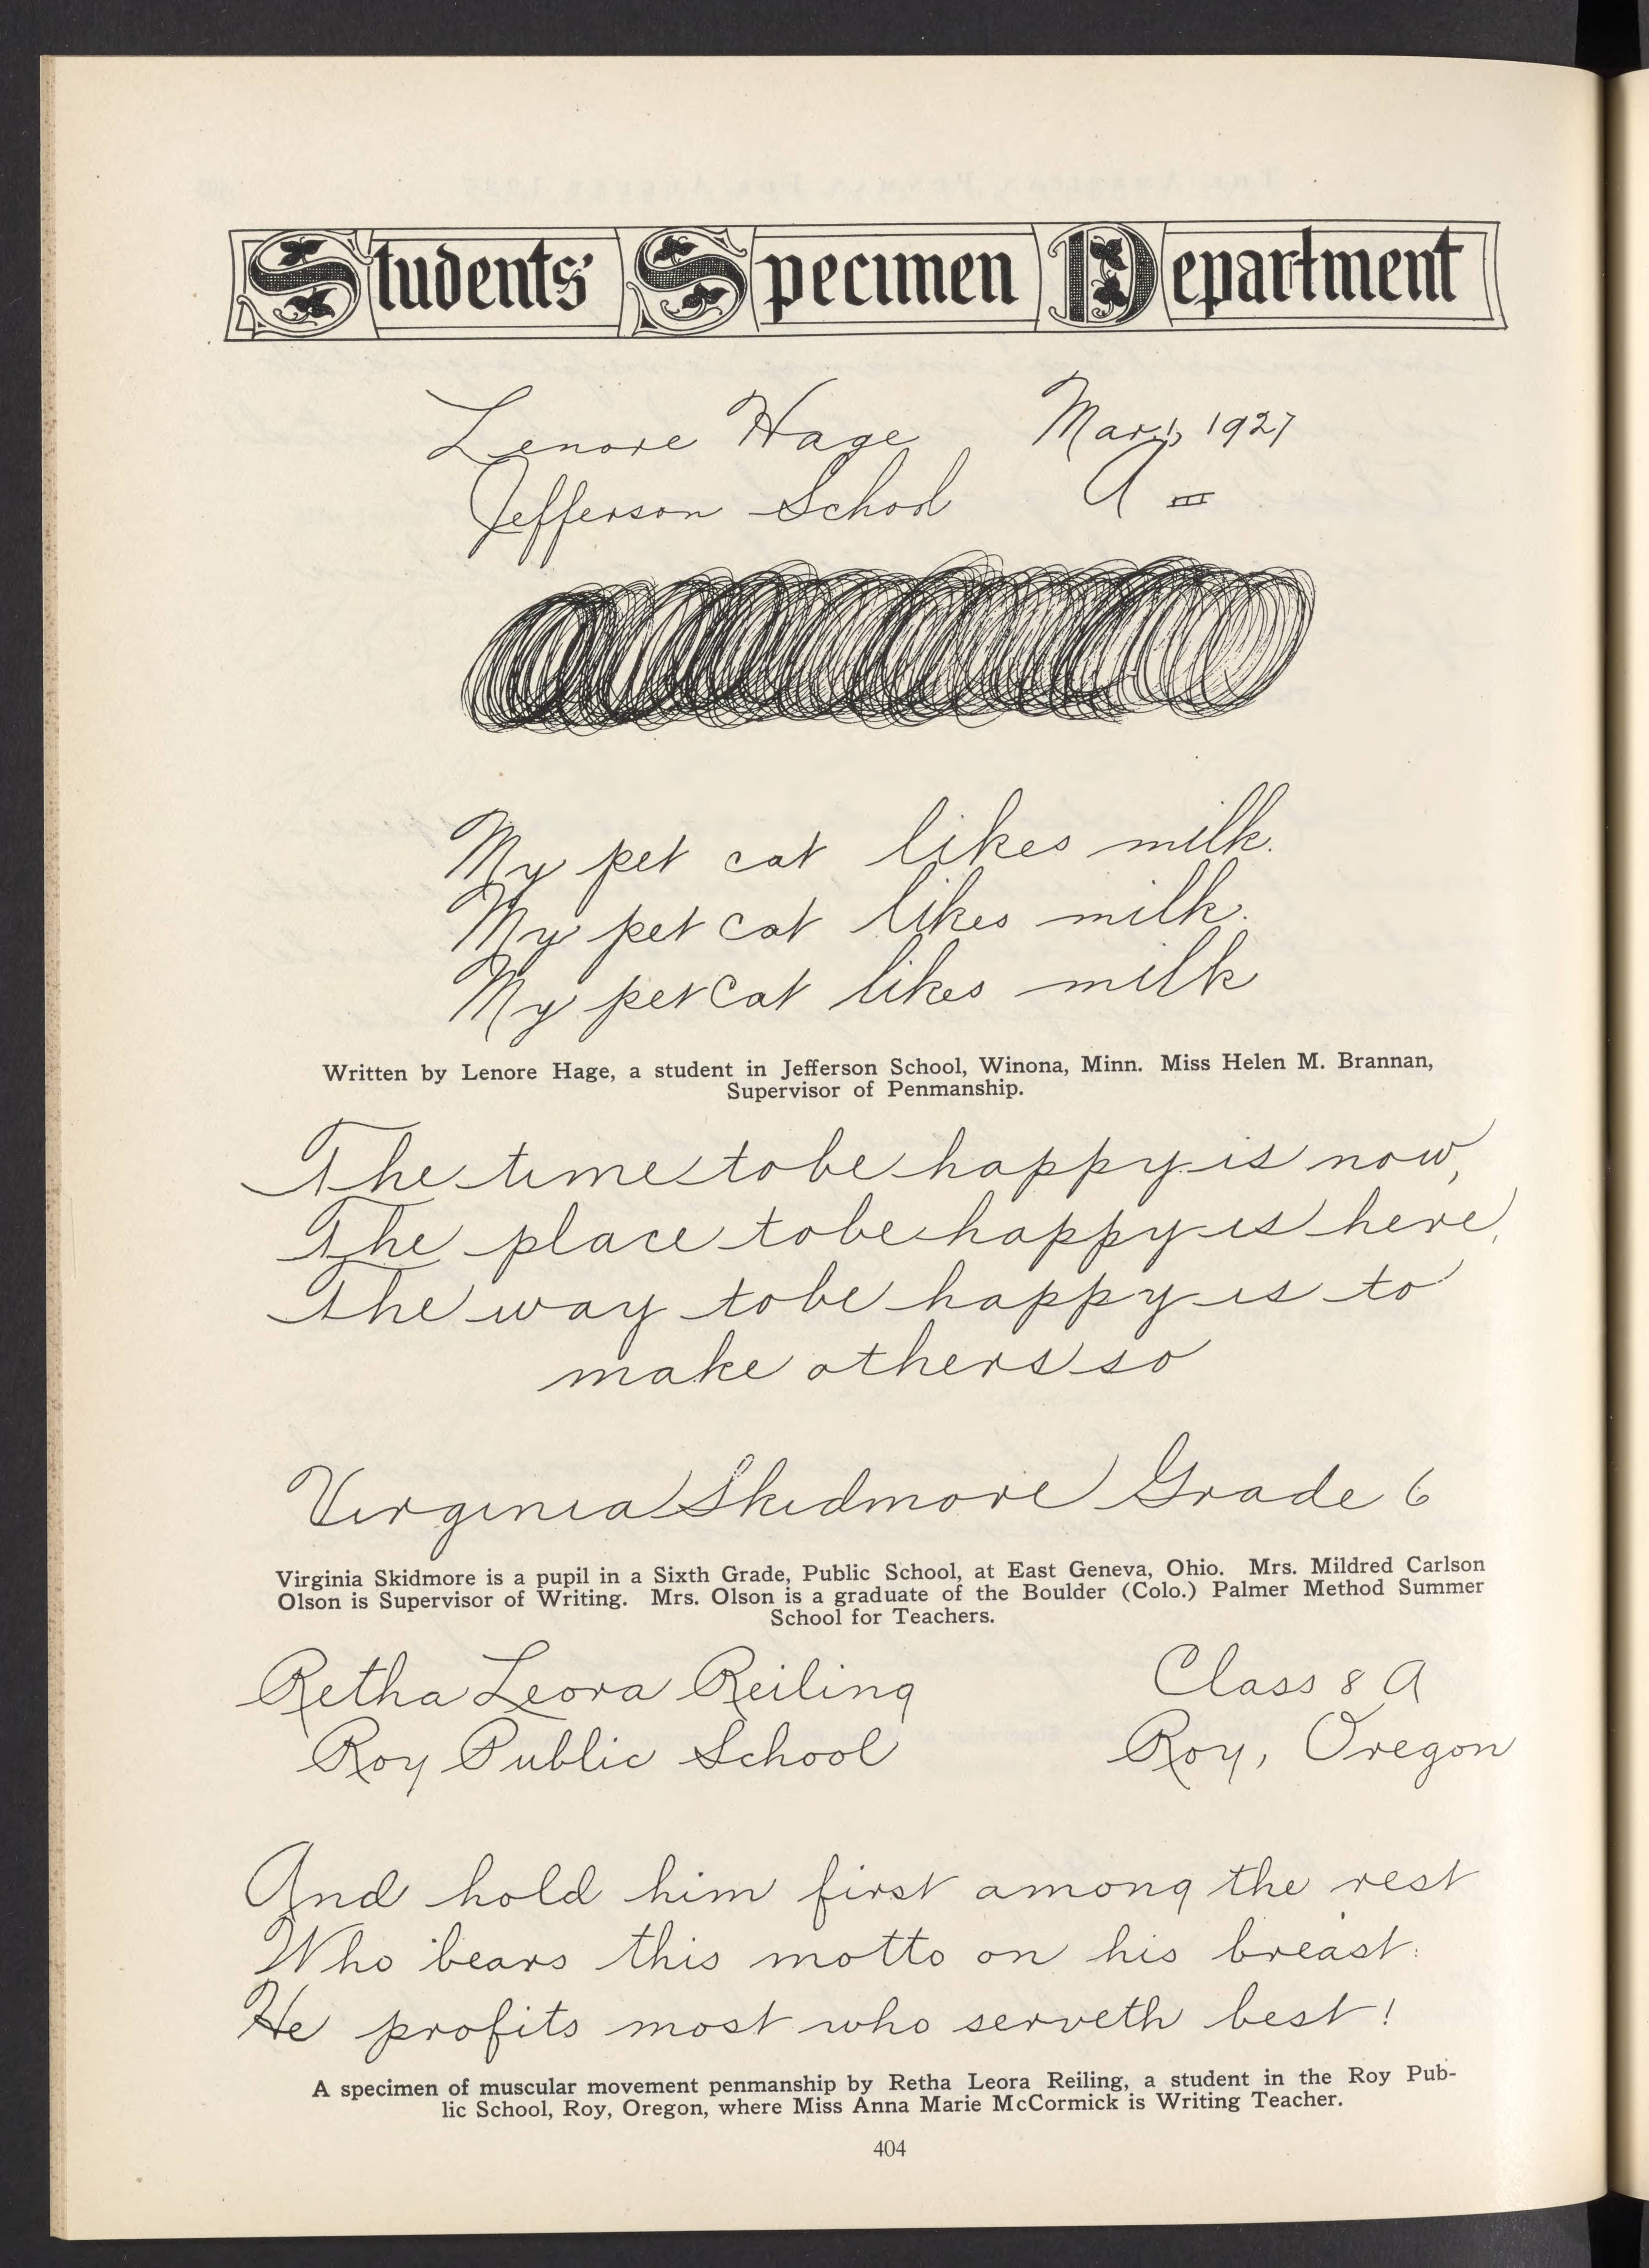 Students' Specimen Department
Lenore Hage Mar. 1, 1927
Jefferson School A III
My pet cat likes milk.
My pet cat likes milk.
My pet cat likes milk
Written by Lenore Hage, a student in Jefferson School, Winona, Minn. Miss Helen M. Brannan,
Supervisor of Penmanship.
The time to be happy is now,
The place to be happy is here,
The way to be happy is to
make others so
Virginia Skidmore Grade 6
Virginia Skidmore is a pupil in a Sixth Grade, Public School, at East Geneva, Ohio. Mrs. Mildred Carlson
Olson is Supervisor of Writing. Mrs. Olson is a graduate of the Boulder (Colo.) Palmer Method Summer
School for Teachers.
Retha Leora Reiling Class 8 A
Roy Public School Roy, Oregon
And hold him first among the rest
Who bears this motto on his breast:
He profits most who serveth best!
A specimen of muscular movement penmanship by Retha Leora Reiling, a student in the Roy Pub-
lic School, Roy, Oregon, where Miss Anna Marie McCormick is Writing Teacher.
404